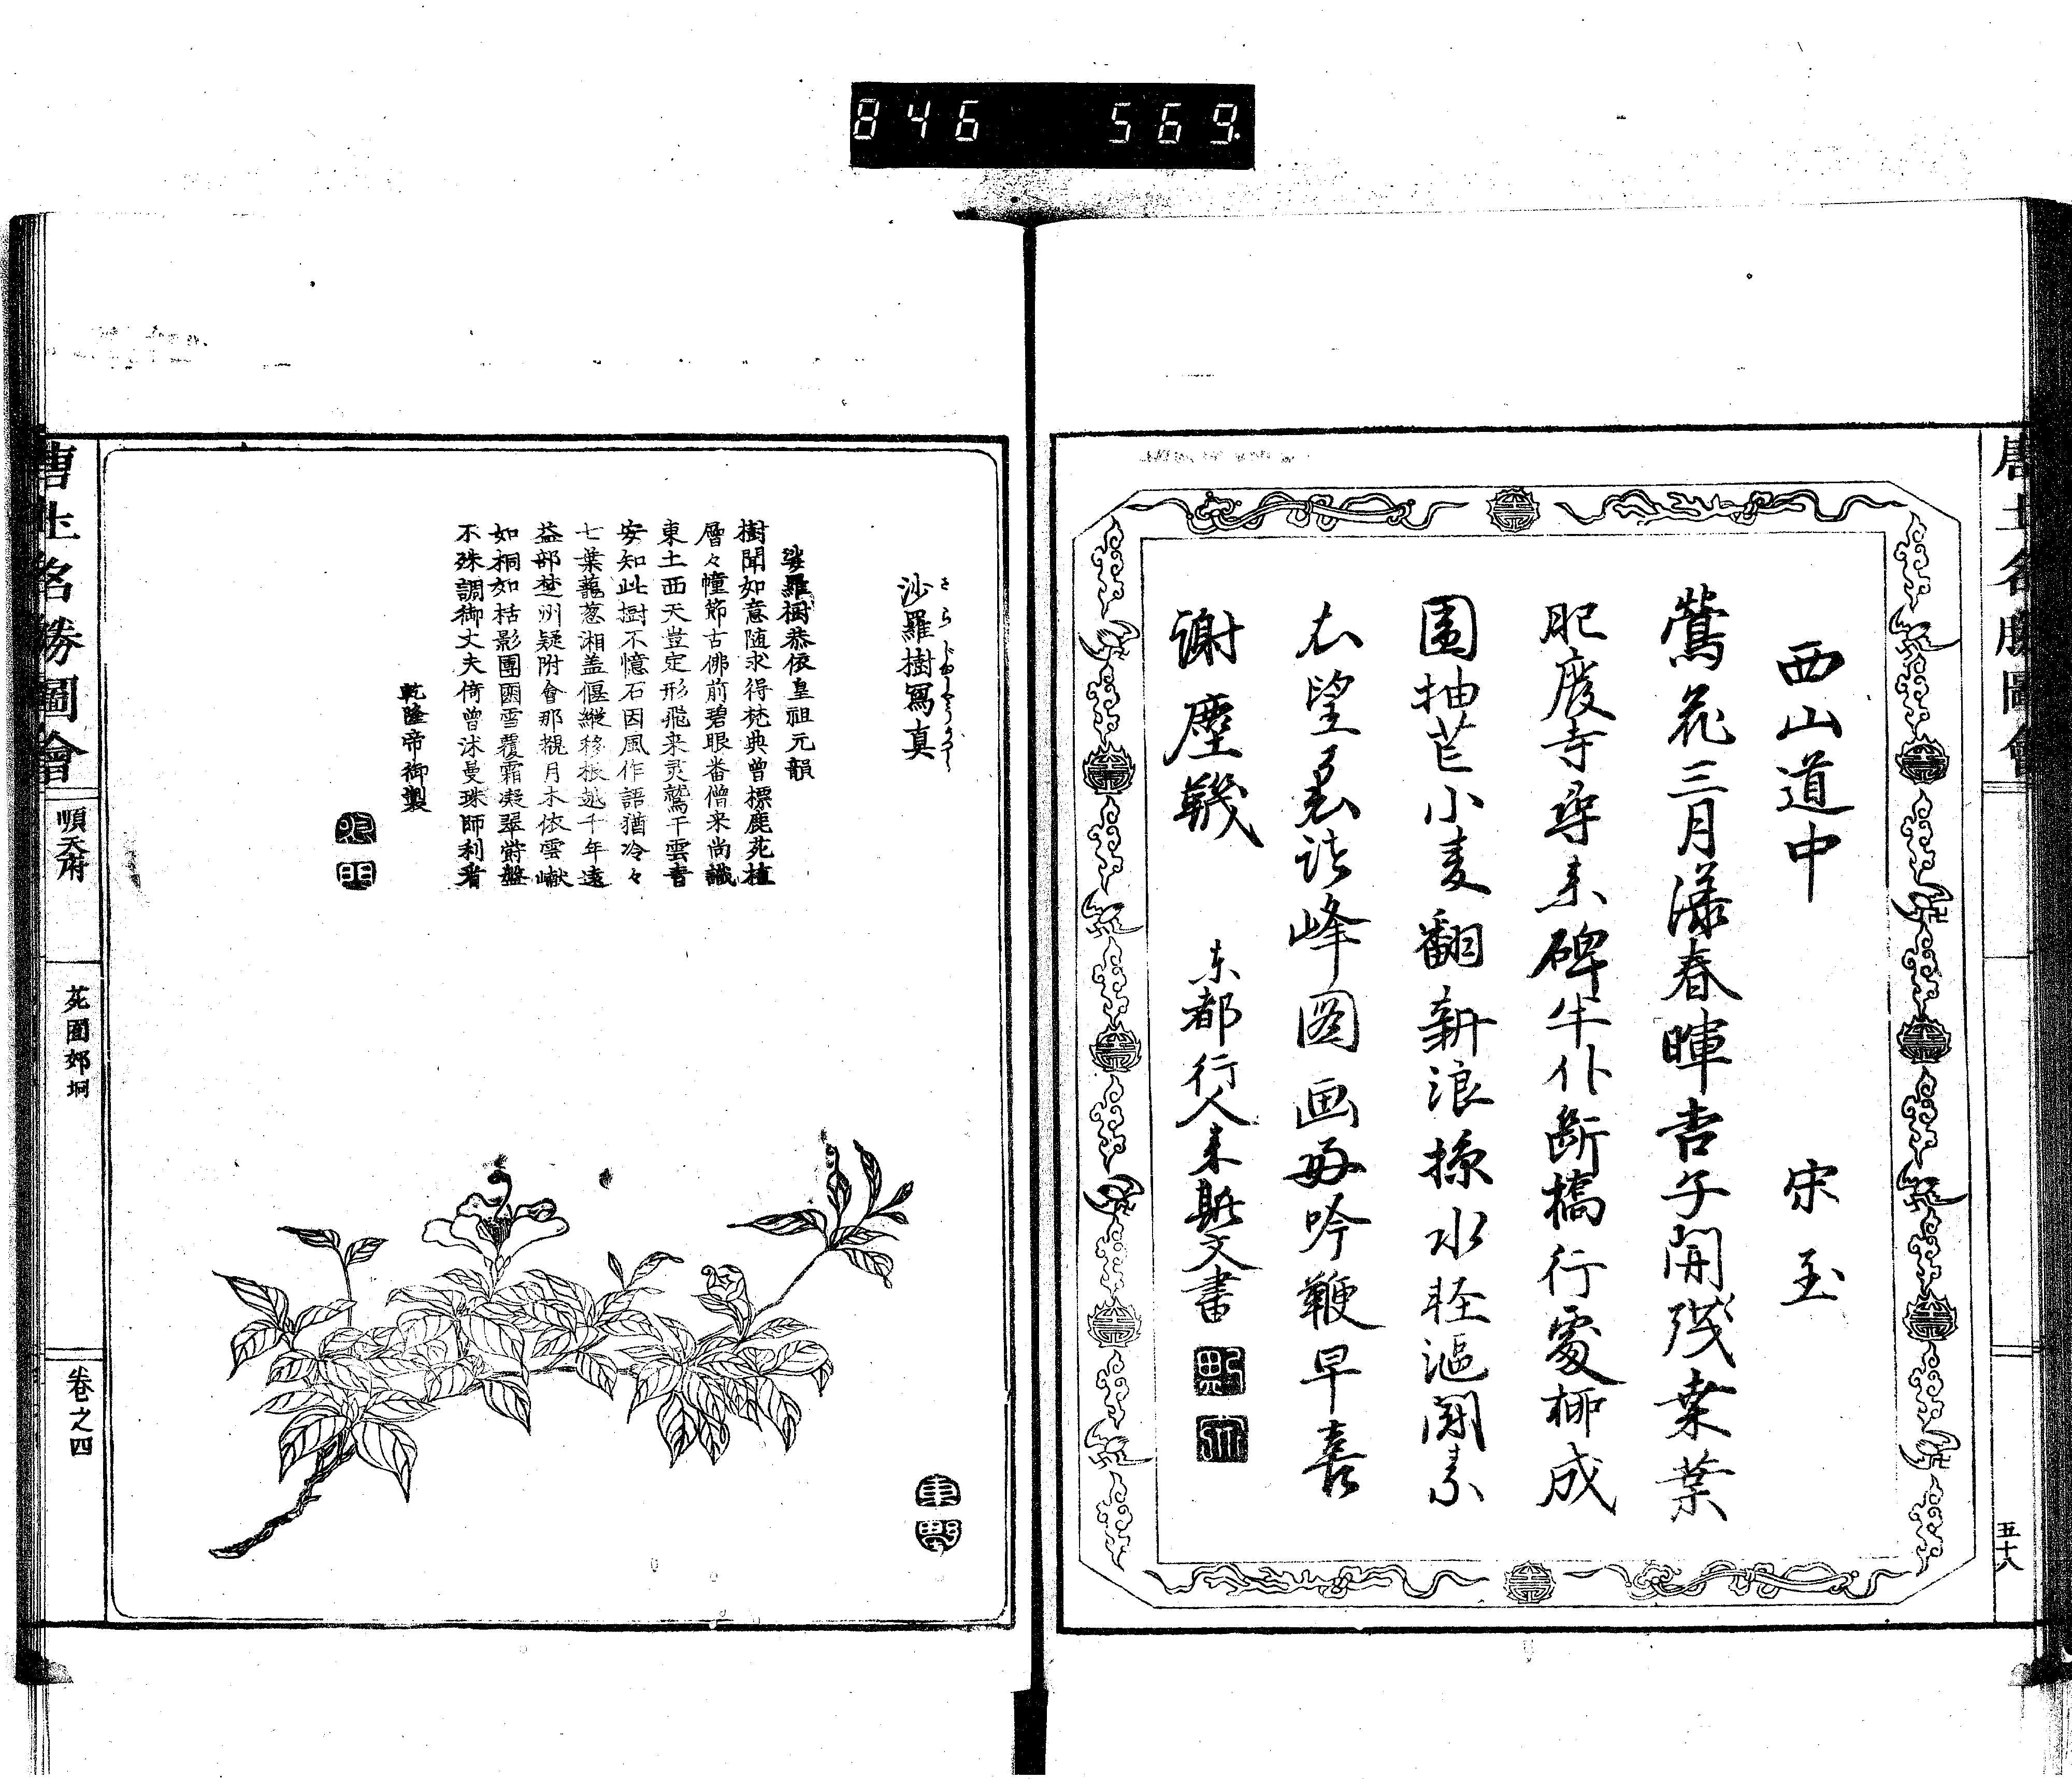 846 569.
西山道中 宋至
鶯花三月漾春暉杏子開殘葉葉
肥廢寺尋来碑半仆断橋行處柳成
圍抽芒小麦翻新浪掠水軽漚閙素
衣望裏諸峰図画好吟鞭早喜
謝塵鞿 东都行人来斯文書
五十八
沙羅樹寫真
娑羅樹恭依皇祖元韻
樹聞如意随求得梵典曾標鹿苑植
層々幢節古佛前碧眼番僧来尚識
東土西天豈定形飛来灵鷲干雲青
安知此樹不憶石因風作語猶冷々
七葉蘢葱湘盖偃縱移根逃千年遠
益部楚洲疑附會那覩月木依雲巘
如桐如栝影團圞雪覆霜凝翠欝盤
不殊調御丈夫倚曾沭曼珠師利看
乾隆帝御製
唐土名勝圖會
順天府
苑囿郊坰
卷之四